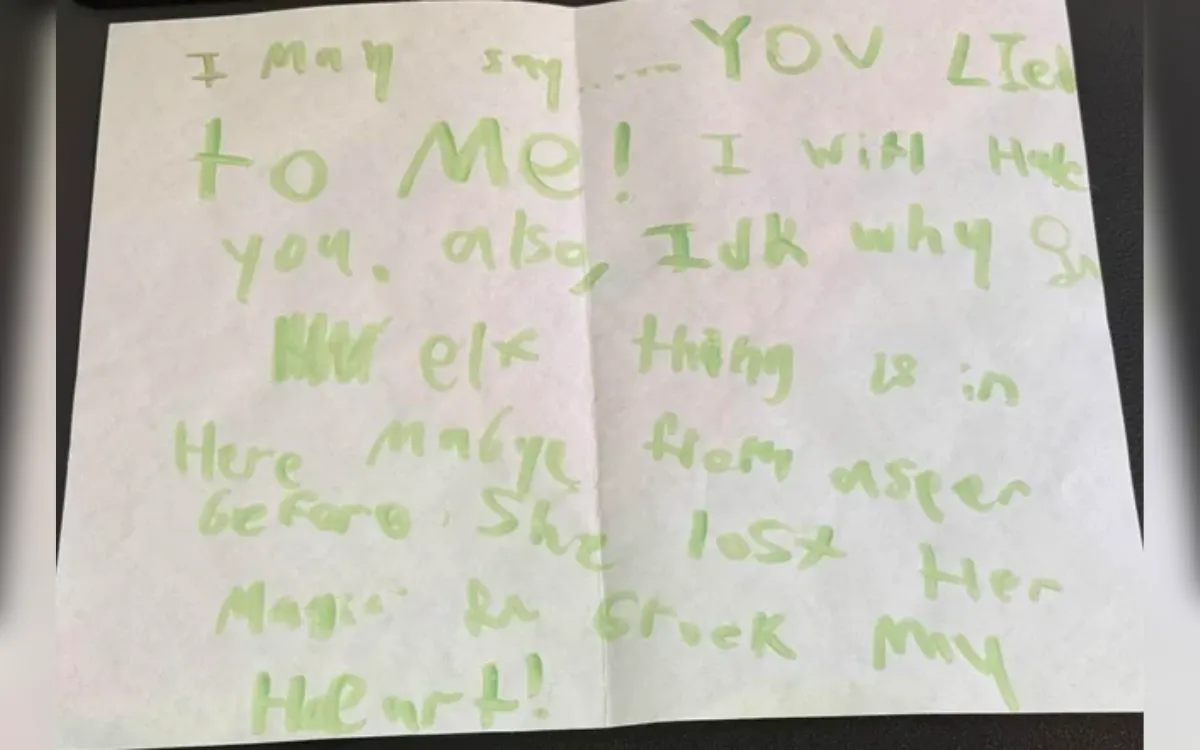 I may say ..... YOU LIed
to Me! I will Hate
you. also, Idk why
elf thing is in
Here mabye from asper
before she lost Her
Magic my
Heart!